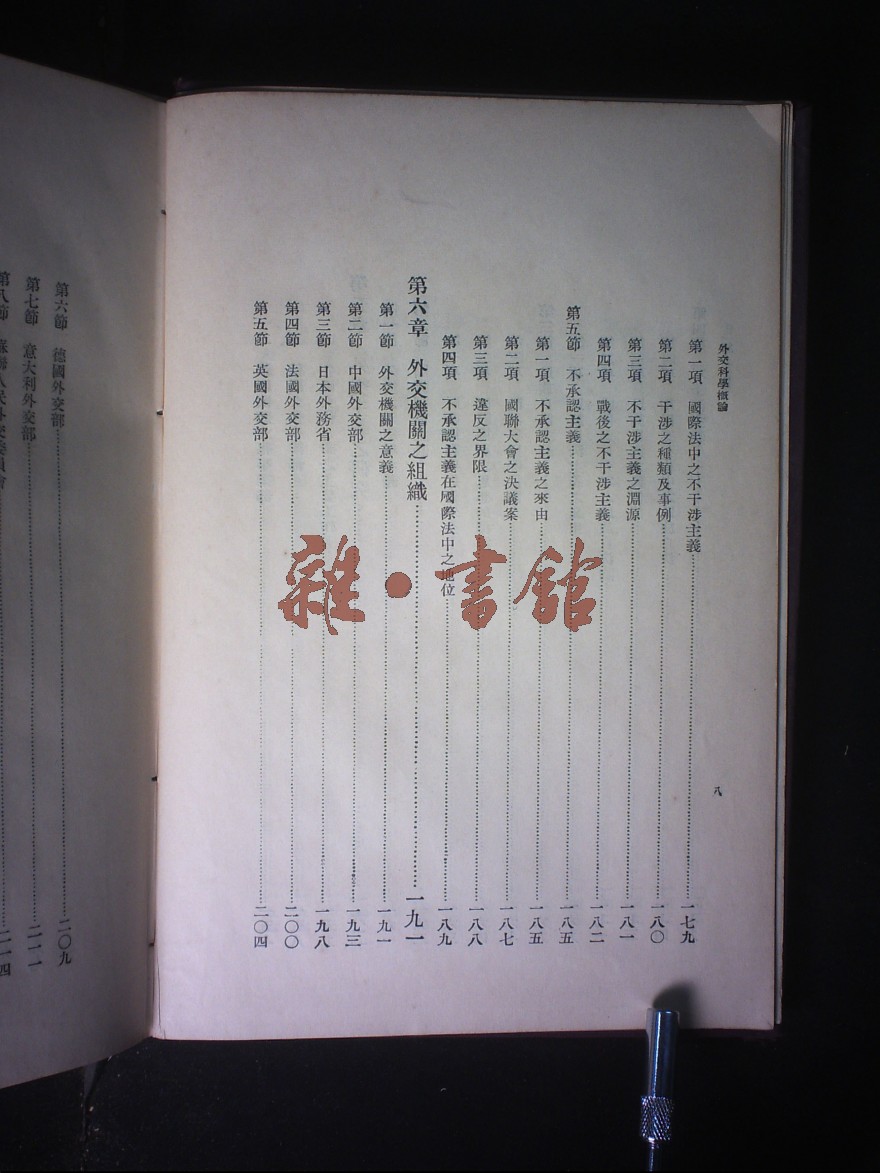 外交科學概論
八
第一項 國際法中之不干涉主義……一七九
第二項 干涉之種類及事例……一八〇
第三項 不干涉主義之淵源……一八一
第四項 戰後之不干涉主義……一八二
第五節 不承認主義……一八五
第一項 不承認主義之來由……一八五
第二項 國聯大會之決議案……一八七
第三項 違反之界限……一八八
第四項 不承認主義在國際法中之地位……一八九
第六章 外交機關之組織……一九一
第一節 外交機關之意義……一九一
第二節 中國外交部……一九三
第三節 日本外務省……一九八
第四節 法國外交部……二〇〇
第五節 英國外交部……二〇四
第六節 德國外交部……二〇九
第七節 意大利外交部……二一一
第八節 蘇聯人民外交委員會……二一四
雜·書館